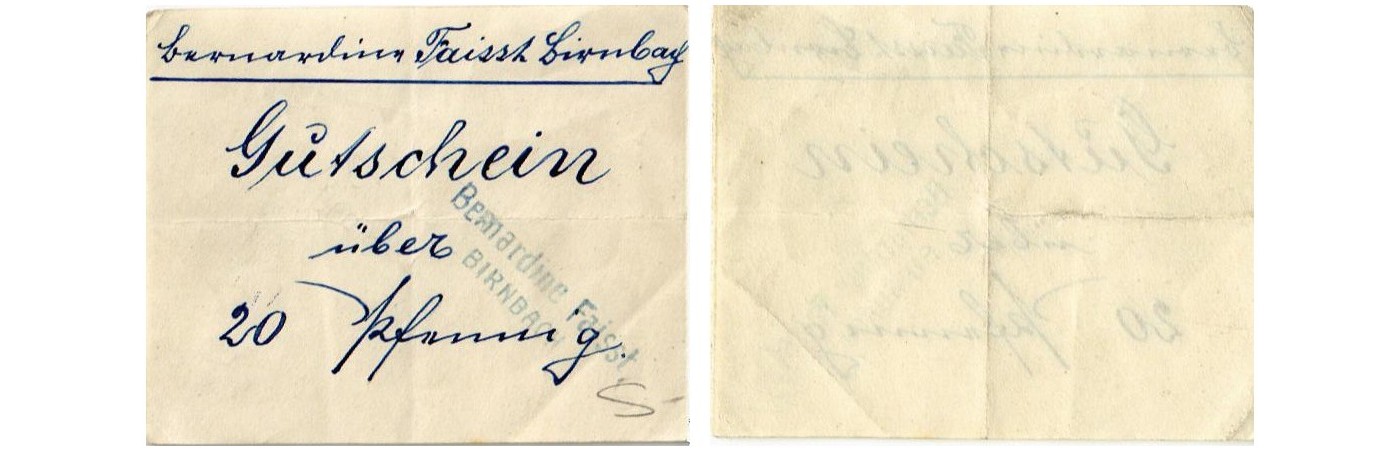 Bernardine Faisst Birnbach
Gutschein
über
20 Pfennig.
Bernardine Faisst
BIRNBACH